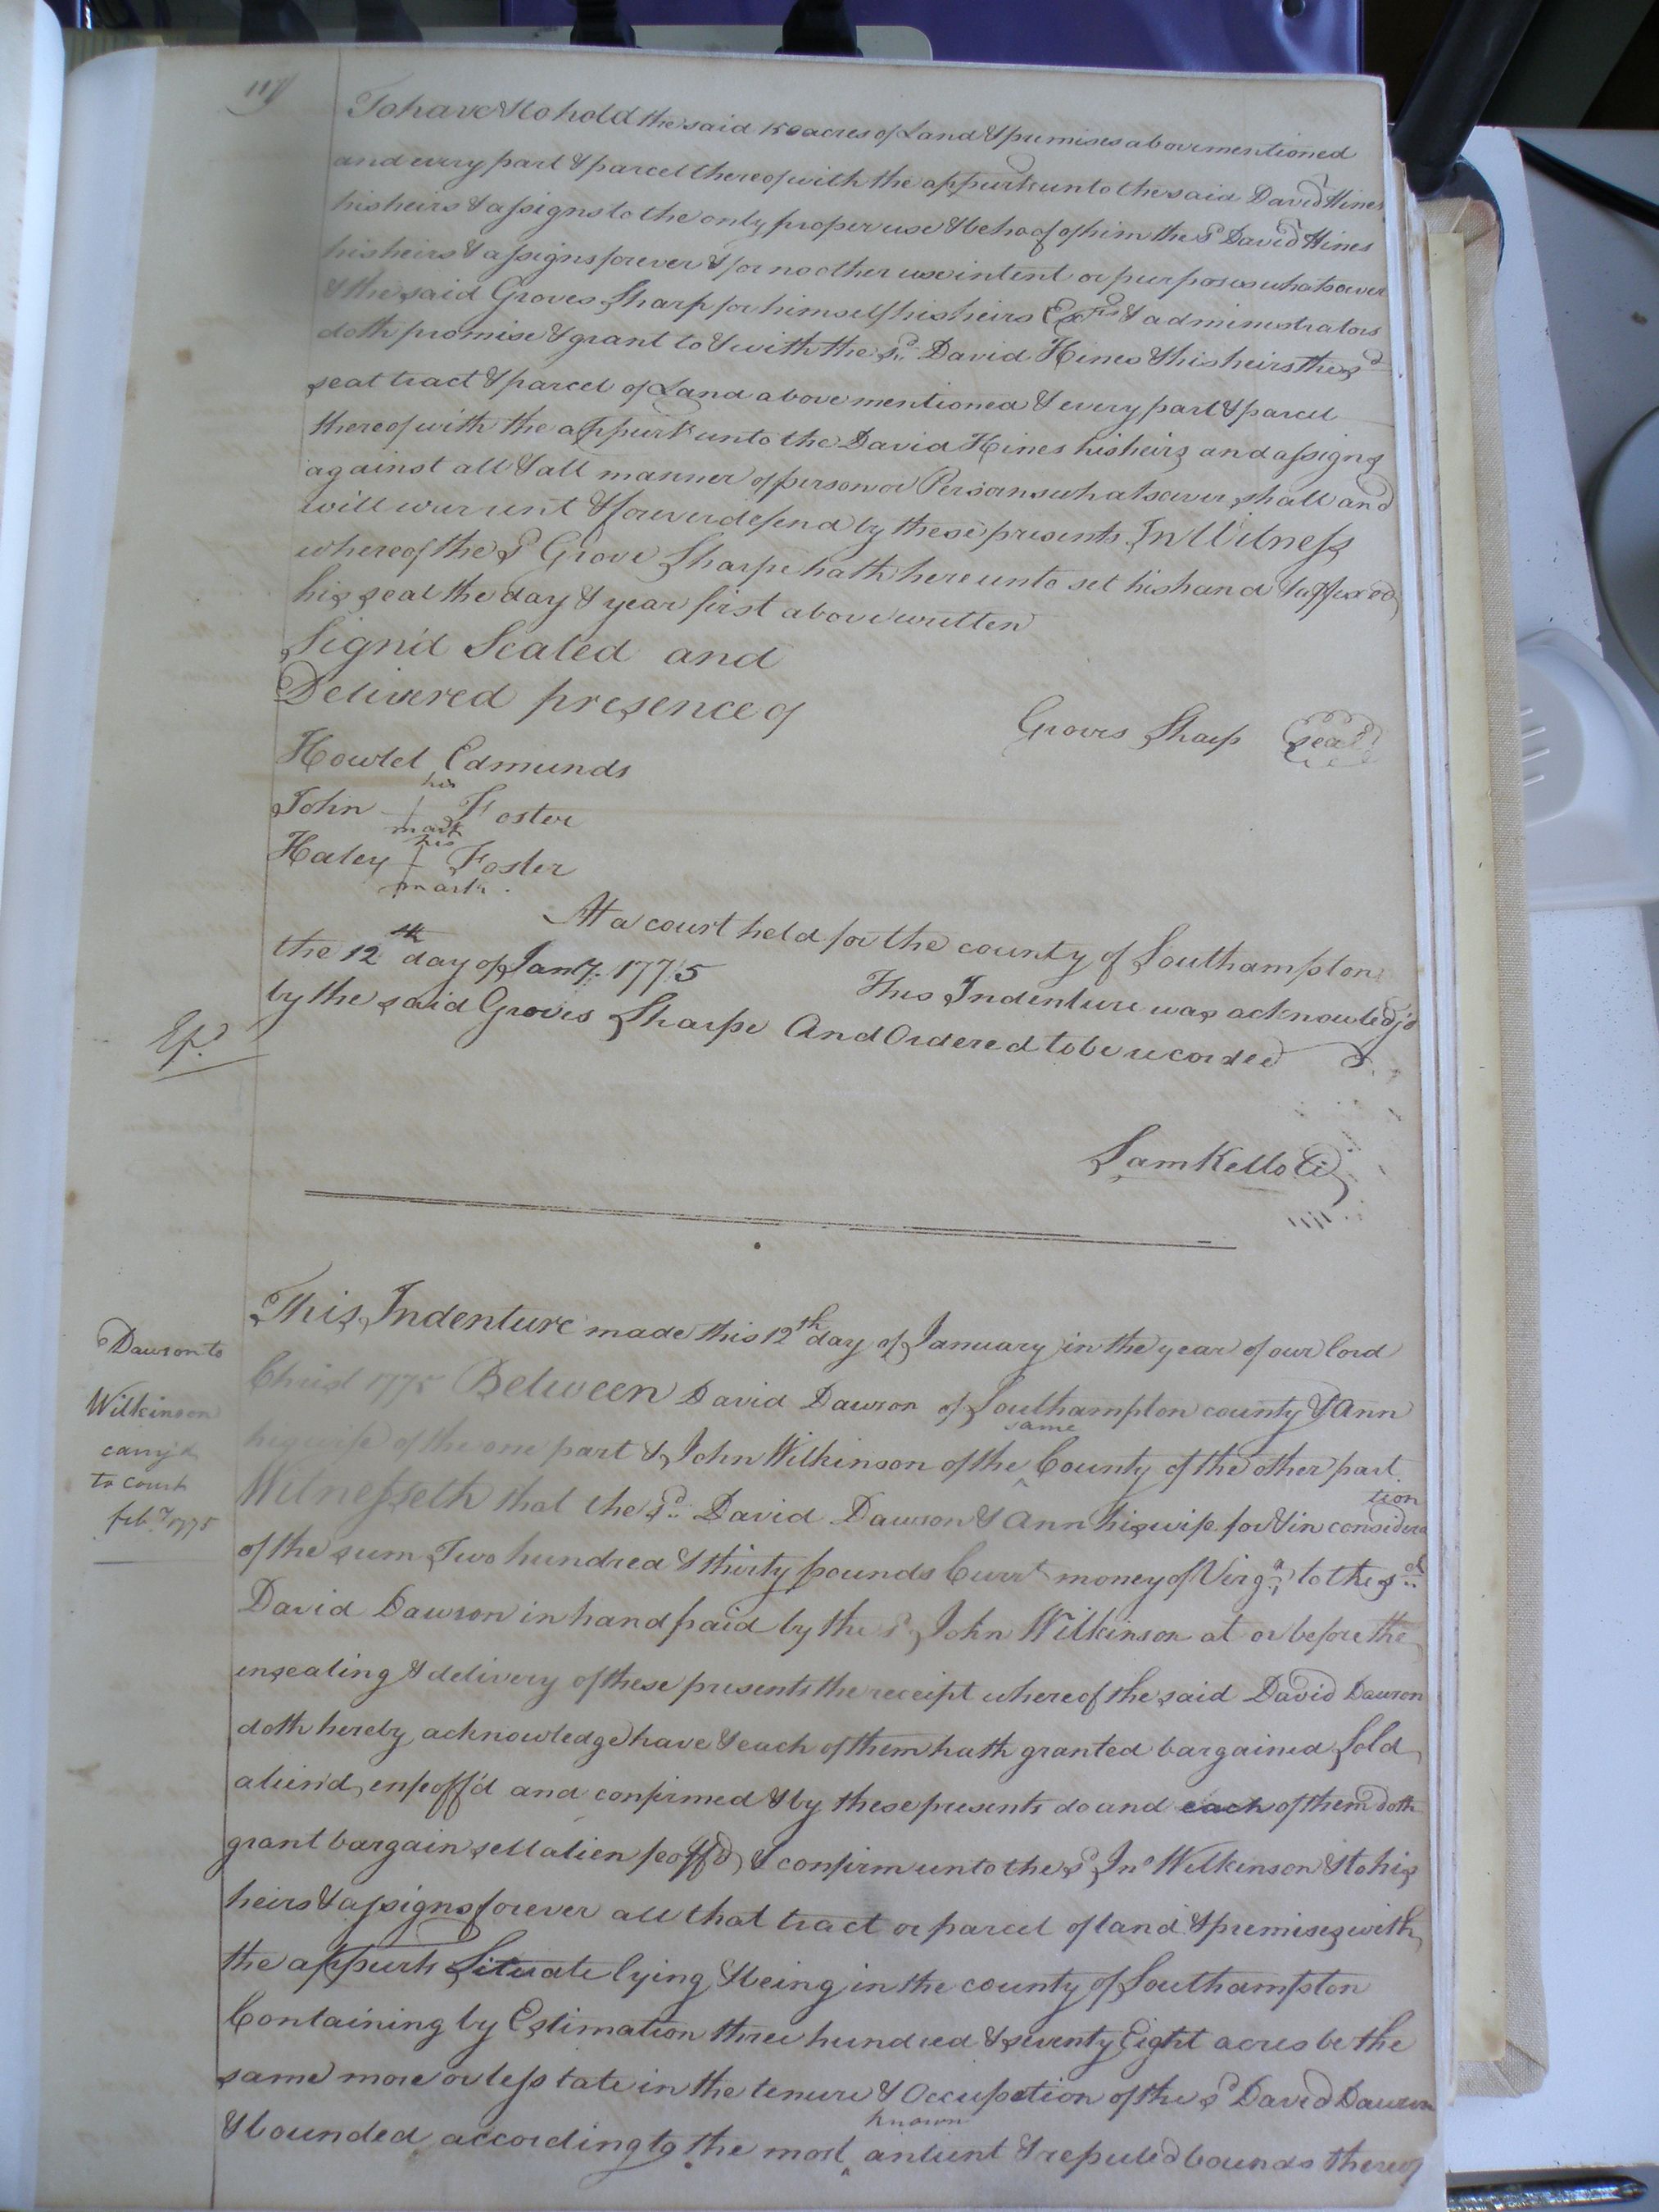 To have & to hold the said 150 acres of Land & premises above mentioned
and every part & parcel thereof with the appurts unto the said David Hines
his heirs & assigns to the only proper use & behoof of him the sd David Hines
his heirs & assigns forever & for no other use intent or purposes whatsoever
& the said Groves Sharp for himself his heirs Exrs & administrators
doth promise & grant to & with the sd David Hines & his heirs the sd
seat tract & parcel of Land above mentioned & every part & parcel
thereof with the appurts unto the David Hines his heirs and assigns
against all & all manner of person or Persons whatsoever shall and
will warrent & forever defend by these presents In Witness
whereof the sd Grove Sharpe hath here unto set his hand & affixed
his seal the day & year first above written
Sign'd Sealed and
Delivered presence of
Groves Sharp seal
Howlel Edmunds
his
John + Foster
mark
his
Haley + Foster
mark
At a court held for the county of Southampton
the 12th day of Jany. 1775
This Indenture was acknowledj'd
by the said Groves Sharpe And Ordered to be recorded
Saml Kello
This Indenture made this 12th day of January in the year of our Lord
Dawson to
Christ 1775 Between David Dawson of Southampton county & Ann
Wilkinson
his wife of the one part & John Wilkinson of the same County of the other part
carry'd
to court
Witnesseth that the sd David Dawson & Ann his wife for & in consideration
feby 1775
of the sum Two hundred & thirty pounds Currt money of Virga to the sd
David Dawson in hand paid by the sd John Wilkinson at or before the
ensealing & delivery of these presents the receipt whereof the said David Dawson
doth hereby acknowledge have & each of them hath granted bargained Sold
alien'd enfeoff'd and confirmed & by these presents do and each of them doth
grant bargain sell alien feoff'd & confirm unto the sd Jno Wilkinson & to his
heirs & assigns forever all that tract or parcel of land & premises with
the appurts Situate lying & being in the county of Southampton
Containing by Estimation three hundred & seventy Eight acres be the
same more or less late in the tenure & Occupation of the sd David Dawson
& bounded according to the most known antient & reputed bounds thereof